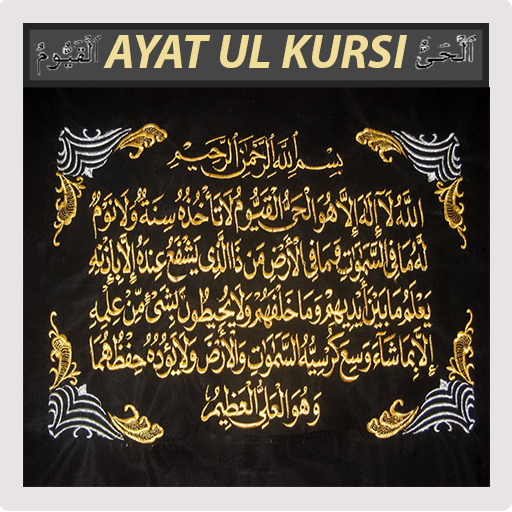 ٱلْحَىُّ AYAT UL KURSI ٱلْقَيُّومُ
بِسْمِ ٱللَّهِ ٱلرَّحْمَٰنِ ٱلرَّحِيمِ
ٱللَّهُ لَآ إِلَٰهَ إِلَّا هُوَ ٱلْحَىُّ ٱلْقَيُّومُ لَا تَأْخُذُهُ سِنَةٌ وَلَا نَوْمٌ
لَّهُ مَا فِى ٱلسَّمَٰوَٰتِ وَمَا فِى ٱلْأَرْضِ مَن ذَا ٱلَّذِى يَشْفَعُ عِندَهُ إِلَّا بِإِذْنِهِ
يَعْلَمُ مَا بَيْنَ أَيْدِيهِمْ وَمَا خَلْفَهُمْ وَلَا يُحِيطُونَ بِشَىْءٍ مِّنْ عِلْمِهِ
إِلَّا بِمَا شَآءَ وَسِعَ كُرْسِيُّهُ ٱلسَّمَٰوَٰتِ وَٱلْأَرْضَ وَلَا يَـُٔودُهُ حِفْظُهُمَا
وَهُوَ ٱلْعَلِىُّ ٱلْعَظِيمُ